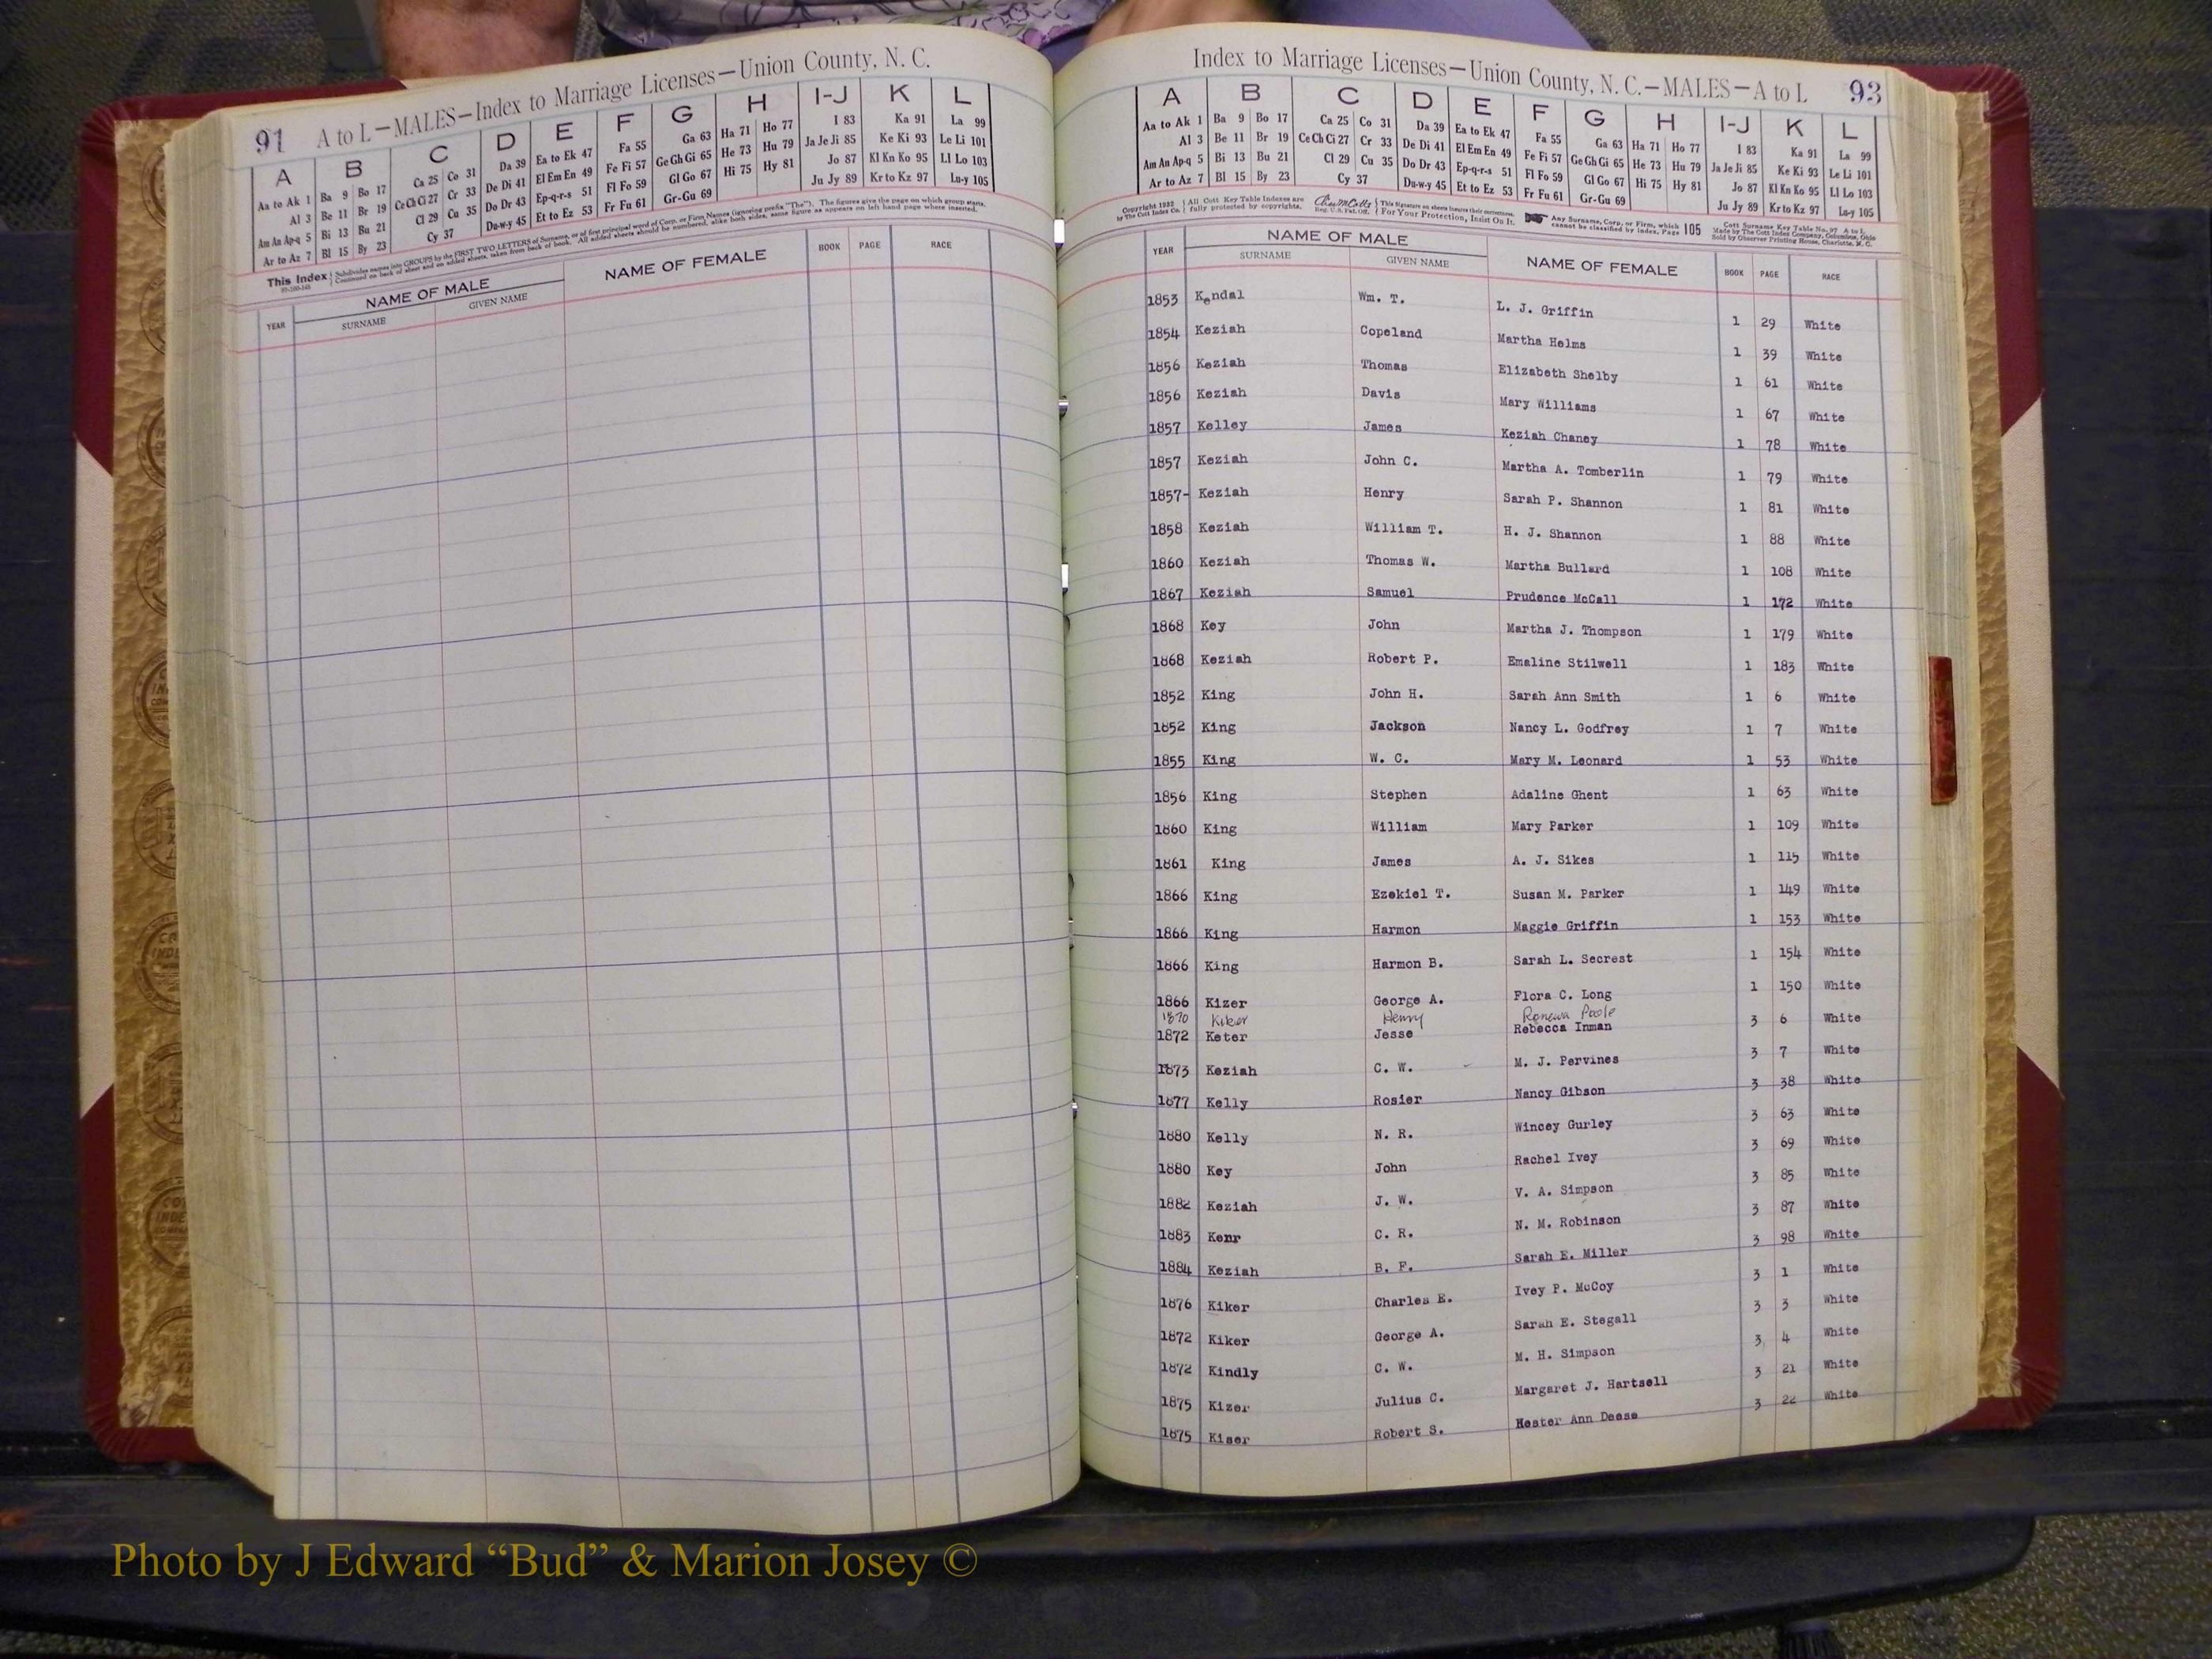 91 A to L—MALES—Index to Marriage Licenses—Union County, N. C.
A B C D E F G H I-J K L
Aa to Ak 1 Ba 9 Bo 17 Ca 25 Co 31 Da 39 Ea to Ek 47 Fa 55 Ga 63 Ha 71 Ho 77 I 83 Ka 91 La 99
Al 3 Be 11 Br 19 Ce Ch Ci 27 Cr 33 De Di 41 El Em En 49 Fe Fi 57 Ge Gh Gi 65 He 73 Hu 79 Ja Je Ji 85 Ke Ki 93 Le Li 101
Am An Ap-q 5 Bi 13 Bu 21 Cl 29 Cu 35 Do Dr 43 Ep-q-r-s 51 Fl Fo 59 Gl Go 67 Hi 75 Hy 81 Jo 87 Kl Kn Ko 95 Ll Lo 103
Ar to Az 7 Bl 15 By 23 Cy 37 Du-w-y 45 Et to Ez 53 Fr Fu 61 Gr-Gu 69 Ju Jy 89 Kr to Kz 97 Lu-y 105
This Index Subdivides names into GROUPS by the FIRST TWO LETTERS of Surname, or of first principal word of Corp. or Firm Names (ignoring prefix "The"). The figures give the page on which group starts.
Continued on back of sheet and on added sheets, taken from back of book. All added sheets should be numbered, alike both sides, same figure as appears on left hand page where inserted.
NAME OF MALE
YEAR SURNAME GIVEN NAME NAME OF FEMALE BOOK PAGE RACE
Index to Marriage Licenses—Union County, N. C.—MALES—A to L 93
A B C D E F G H I-J K L
Aa to Ak 1 Ba 9 Bo 17 Ca 25 Co 31 Da 39 Ea to Ek 47 Fa 55 Ga 63 Ha 71 Ho 77 I 83 Ka 91 La 99
Al 3 Be 11 Br 19 Ce Ch Ci 27 Cr 33 De Di 41 El Em En 49 Fe Fi 57 Ge Gh Gi 65 He 73 Hu 79 Ja Je Ji 85 Ke Ki 93 Le Li 101
Am An Ap-q 5 Bi 13 Bu 21 Cl 29 Cu 35 Do Dr 43 Ep-q-r-s 51 Fl Fo 59 Gl Go 67 Hi 75 Hy 81 Jo 87 Kl Kn Ko 95 Ll Lo 103
Ar to Az 7 Bl 15 By 23 Cy 37 Du-w-y 45 Et to Ez 53 Fr Fu 61 Gr-Gu 69 Ju Jy 89 Kr to Kz 97 Lu-y 105
Copyright 1932 All Cott Key Table Indexes are This Signature on sheets insures their correctness. Any Surname, Corp. or Firm, which Cott Surname Key Table No. 97 A to L
by The Cott Index Co. fully protected by copyrights. Reg. U.S. Pat. Off. For Your Protection, Insist On It. cannot be classified by index, Page 105 Made by The Cott Index Company, Columbus, Ohio
Sold by Observer Printing House, Charlotte, N. C.
NAME OF MALE
YEAR SURNAME GIVEN NAME NAME OF FEMALE BOOK PAGE RACE
1853 Kendal Wm. T. L. J. Griffin 1 29 White
1854 Keziah Copeland Martha Helms 1 39 White
1856 Keziah Thomas Elizabeth Shelby 1 61 White
1856 Keziah Davis Mary Williams 1 67 White
1857 Kelley James Keziah Chaney 1 78 White
1857 Keziah John C. Martha A. Tomberlin 1 79 White
1857- Keziah Henry Sarah P. Shannon 1 81 White
1858 Keziah William T. H. J. Shannon 1 88 White
1860 Keziah Thomas W. Martha Bullard 1 108 White
1867 Keziah Samuel Prudence McCall 1 172 White
1868 Key John Martha J. Thompson 1 179 White
1868 Keziah Robert P. Emaline Stilwell 1 183 White
1852 King John H. Sarah Ann Smith 1 6 White
1852 King Jackson Nancy L. Godfrey 1 7 White
1855 King W. C. Mary M. Leonard 1 53 White
1856 King Stephen Adaline Ghent 1 63 White
1860 King William Mary Parker 1 109 White
1861 King James A. J. Sikes 1 115 White
1866 King Ezekiel T. Susan M. Parker 1 149 White
1866 King Harmon Maggie Griffin 1 153 White
1866 King Harmon B. Sarah L. Secrest 1 154 White
1866 Kizer George A. Flora C. Long 1 150 White
1870 Kiker Henry Poole 3 6 White
1872 Keter Jesse Rebecca Inman 3 7 White
1873 Keziah C. W. M. J. Pervines 3 38 White
1877 Kelly Rosier Nancy Gibson 3 63 White
1880 Kelly N. R. Wincey Gurley 3 69 White
1880 Key John Rachel Ivey 3 85 White
1882 Keziah J. W. V. A. Simpson 3 87 White
1883 Kenr C. R. N. M. Robinson 3 98 White
1884 Keziah B. F. Sarah E. Miller 3 1 White
1876 Kiker Charles E. Ivey P. McCoy 3 3 White
1872 Kiker George A. Sarah E. Stegall 3 4 White
1872 Kindly C. W. M. H. Simpson 3 21 White
1875 Kizer Julius C. Margaret J. Hartsell 3 22 White
1875 Kiser Robert S. Hester Ann Deese
Photo by J Edward “Bud” & Marion Josey ©